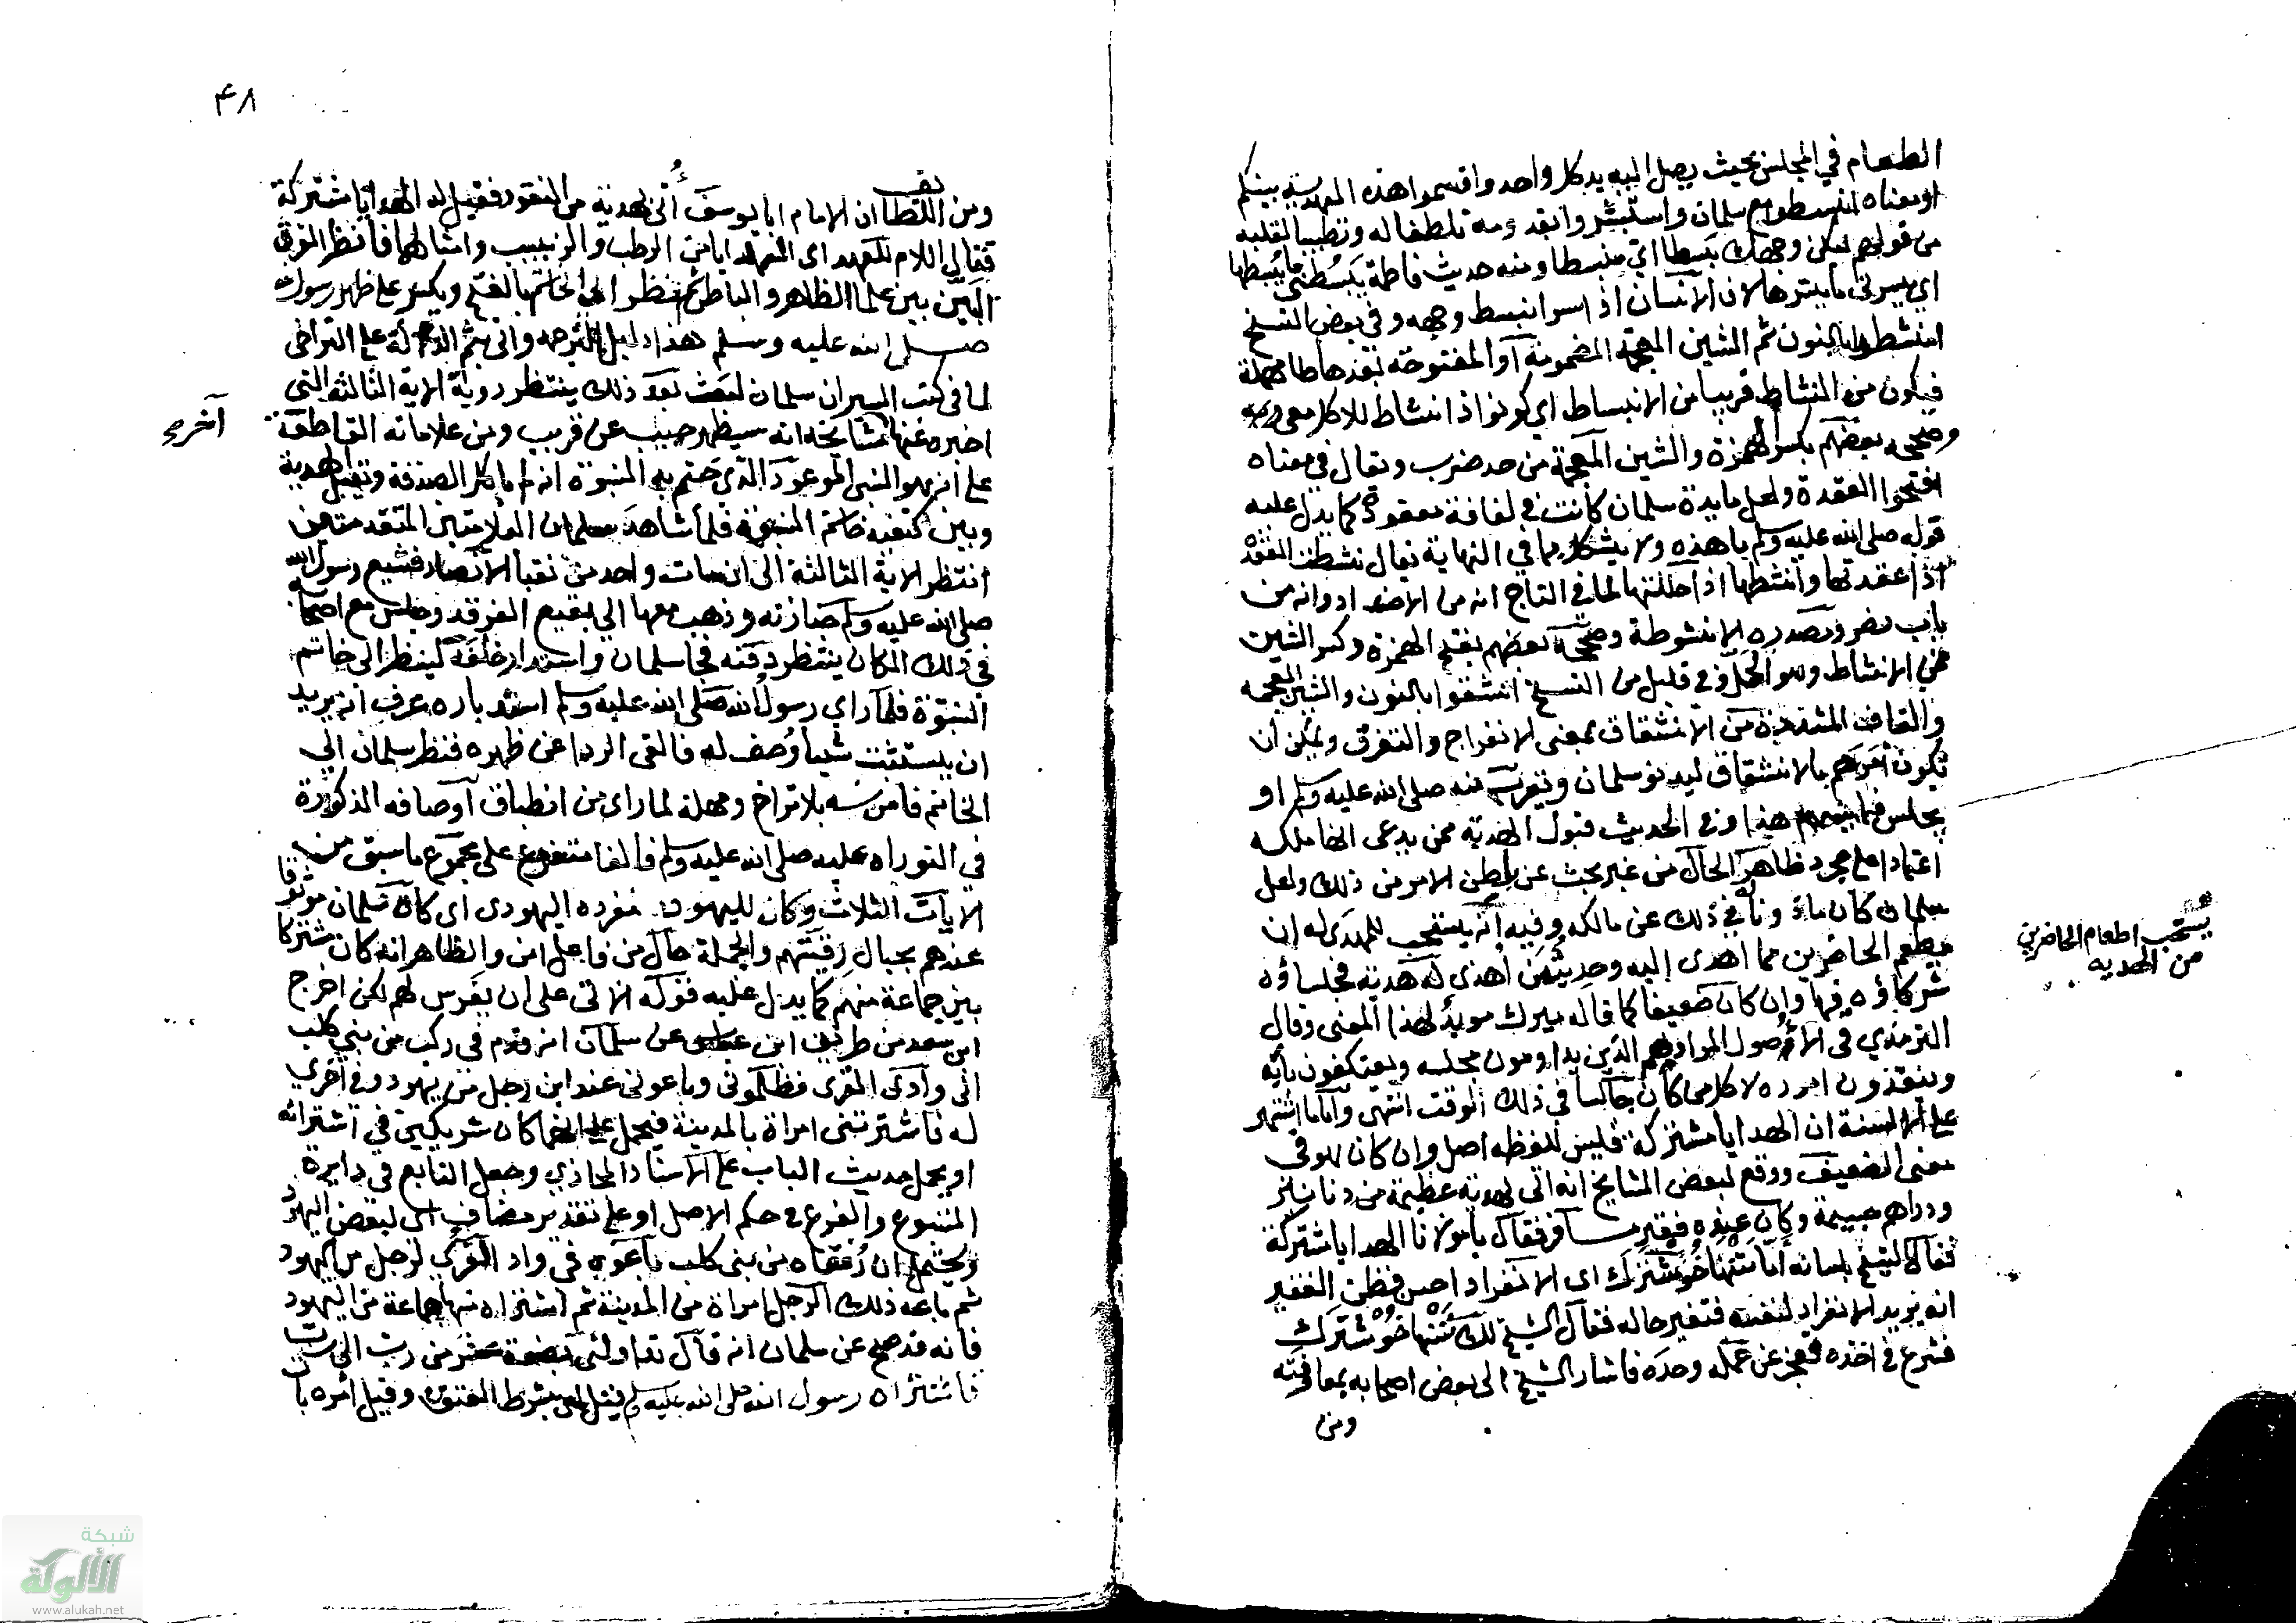 الطعام في المجلس بحيث يصل اليه يد كل واحد واقسموا هذه الهدية بينكم
او معناه انبسطوا مع سلمان واستبشروا بقدومه تلطفا له وتطييبا لقلبه
من قولهم ليكن وجهك بسطا اي منبسطا ومنه حديث فاطمة يبسطني ما يبسطها
اي يسرني ما يسرها لان الانسان اذا سر انبسط وجهه وفي بعض النسخ
انشطوا بالنون ثم الشين المعجمة المضمومة او المفتوحة بعدها طا مهملة
فيكون من النشاط قريبا من الانبساط اي كونوا ذا نشاط للاكل معي
وصححه بعضهم بكسر الهمزة والشين المعجمة من حد ضرب ويقال في معناه
افتحوا العقدة ولعل مايدة سلمان كانت في لفافة معقودة كما يدل عليه
قوله صلى الله عليه وسلم ما هذه ولا يشكل بما في النهاية يقال نشطت العقد
اذا عقدتها وانشطتها اذا حللتها لما في التاج انه من الاضداد وانه من
باب نصر ومصدره الانشوطة وصححه بعضهم بفتح الهمزة وكسر الشين
من الانشاط وهو الحل وفي قليل من النسخ انشقوا بالنون والشين المعجمة
والقاف المشددة من الانشقاق بمعنى الانفراج والتفرق ويمكن ان
يكون امرهم بالانشقاق ليدنو سلمان ويقرب منه صلى الله عليه وسلم او
يجلس فيما بينهم هذا وفي الحديث قبول الهدية ممن يدعى انها ملكه
اعتمادا على مجرد ظاهر الحال من غير بحث عن باطن الامر من ذلك ولعل
سلمان كان ماذونا له في ذلك عن مالكه وفيه انه يستحب للمهدى له ان
يطعم الحاضرين مما اهدى اليه وحديث من اهدي له هدية فجلساؤه
شركاؤه فيها وان كان ضعيفا كما قاله ميرك مويد لهذا المعنى وقال
الترمذي في الاصول المراد بهم الذين يداومون مجلسه ويعتكفون بابه
ويتفقدون اموره لا كل من كان جالسا في ذلك الوقت انتهى واما ما اشتهر
على الالسنة ان الهدايا مشتركة فليس للفظه اصل وان كان هو في
معنى الضعيف ووقع لبعض المشايخ انه اتي بهدية عظيمة من دنانير
ودراهم جسيمة وكان عنده فقير مسافر فقال يا مولانا الهدايا مشتركة
فقال الشيخ بلسانه اما تنها خوشترك اي الانفراد احسن فظن الفقير
انه يريد الانفراد لنفسه فتغير حاله فقال الشيخ لك تنها خوشترك
فشرع في اخذه فعجز عن حمله وحده فاشار الشيخ الى بعض اصحابه بمعاونته
ومن
يستحب اطعام الحاضرين
من الهدية
٤٨
ومن اللطايف ان الامام ابا يوسف أُتي بهدية من النقود فقيل له الهدايا مشتركة
فقال اللام للعهد اي الهدايا من الرطب والزبيب وامثالهما فانظر الفرق
البين بين علما الظاهر والباطن ثم نظر الى الخاتم بالفتح ويكسر على ظهر رسول الله
صلى الله عليه وسلم هذا دليل الترجمة واتى بثم الدالة على التراخي
لما في كتب السير ان سلمان لبث بعد ذلك ينتظر روية الاية الثالثة التي
اخبره عنها مشايخه انه سيظهر حبيب عن قريب ومن علاماته القاطعة
على انه هو النبي الموعود الذي ختم به النبوة انه لا ياكل الصدقة ويقبل الهدية
وبين كتفيه خاتم النبوة فلما شاهد سلمان العلامتين المتقدمتين
انتظر الاية الثالثة الى ان مات واحد من نقبا الانصار فشيع رسول الله
صلى الله عليه وسلم جنازته وذهب معها الى بقيع الغرقد وجلس مع اصحابه
في ذلك المكان ينتظر دفنه فجا سلمان واستدار خلفه لينظر الى خاتم
النبوة فلما راى رسول الله صلى الله عليه وسلم استدباره عرف انه يريد
ان يستثبت شيا وُصف له فالقى الردا عن ظهره فنظر سلمان الى
الخاتم فامن به بلا تراخ ومهلة لما راى من انطباق اوصافه المذكورة
في التوراه عليه صلى الله عليه وسلم فالفا متفرع على مجموع ما سبق من
الايات الثلاث وكان لليهود مفرده اليهودي اي كان سلمان موثوقا
عندهم بحبال رقيتهم والجملة حال من فاعل امن والظاهر انه كان مشتركا
بين جماعة منهم كما يدل عليه قوله الاتي على ان يغرس لهم لكن اخرج
ابن سعد من طريق ابن عباس عن سلمان انه قدم في ركب من بني كلب
الى وادي القرى فظلموني وباعوني عبدا من رجل من يهود وفي اخرى
له فاشترتني امراة بالمدينة فيحمل على انهما كان شريكين في اشترائه
او يحمل حديث الباب على الاسناد المجازي وجعل التابع في دايرة
المتبوع والفرع في حكم الاصل او على تقدير مضاف اي لبعض اليهود
ويحتمل ان رُفقاه من بني كلب باعوه في واد القرى لرجل من اليهود
ثم باعه ذلك الرجل لامراة من المدينة ثم اشتراه منها جماعة من اليهود
فانه قد صح عن سلمان انه قال تداولني بضعة عشر من رب الى رب
فاشتراه رسول الله صلى الله عليه وسلم قيل بشرط العتق وقيل امره با
شبكة
الألوكة
www.alukah.net